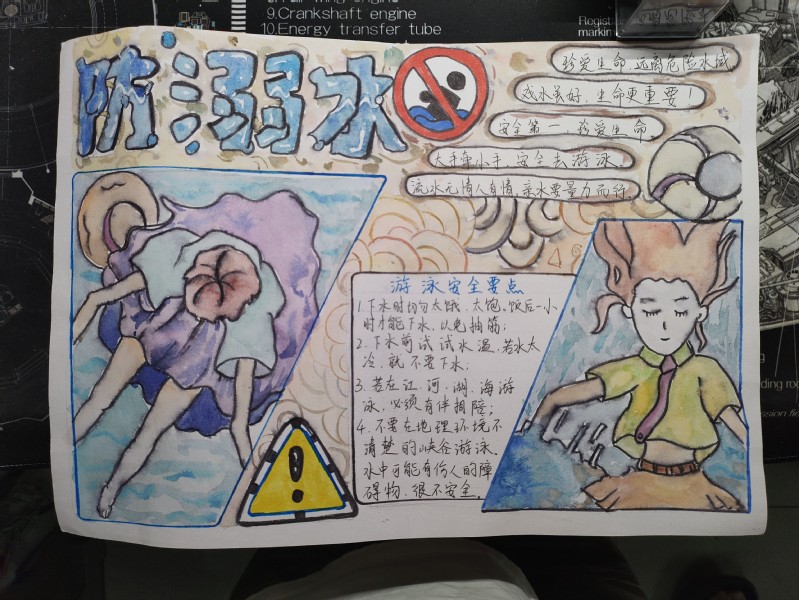 9.Crankshaft engine
10.Energy transfer tube
防溺水
珍爱生命 远离危险水域
戏水虽好,生命更重要!
安全第一,珍爱生命
大手牵小手,安全去游泳
流水无情人有情,亲水要量力而行
游泳安全要点
1.下水时切勿太饿、太饱,饭后一小
时才能下水,以免抽筋;
2.下水前试试水温,若水太
冷,就不要下水;
3.若在江、河、湖、海游
泳,必须有伴相陪;
4.不要在地理环境不
清楚的峡谷游泳,
水中可能有伤人的障
碍物,很不安全。